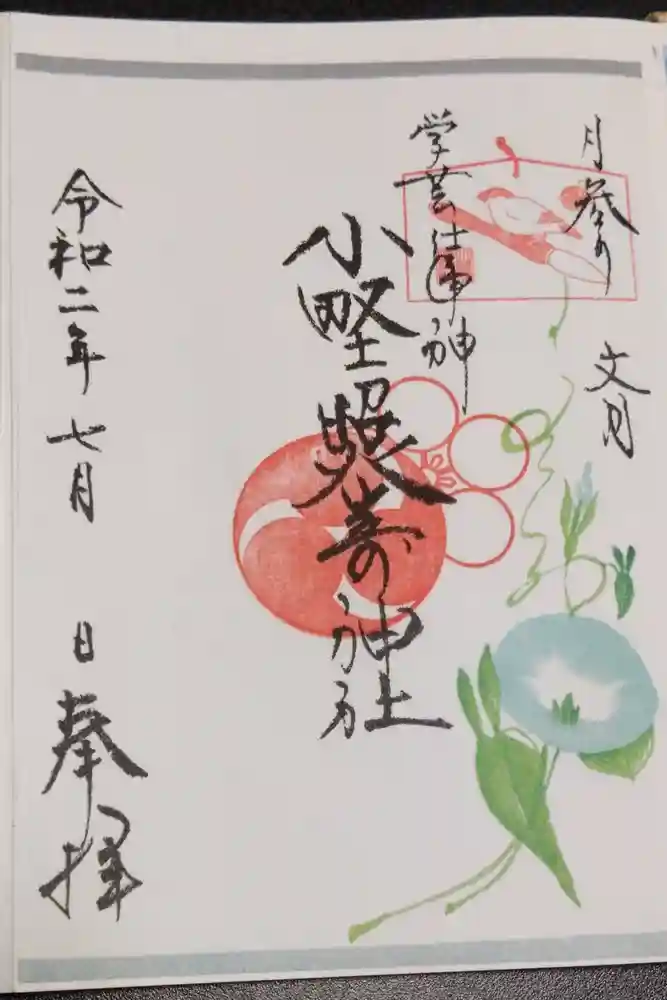 月参り 文月
学芸仕事神
小野照崎神社
令和二年七月 日 奉拝